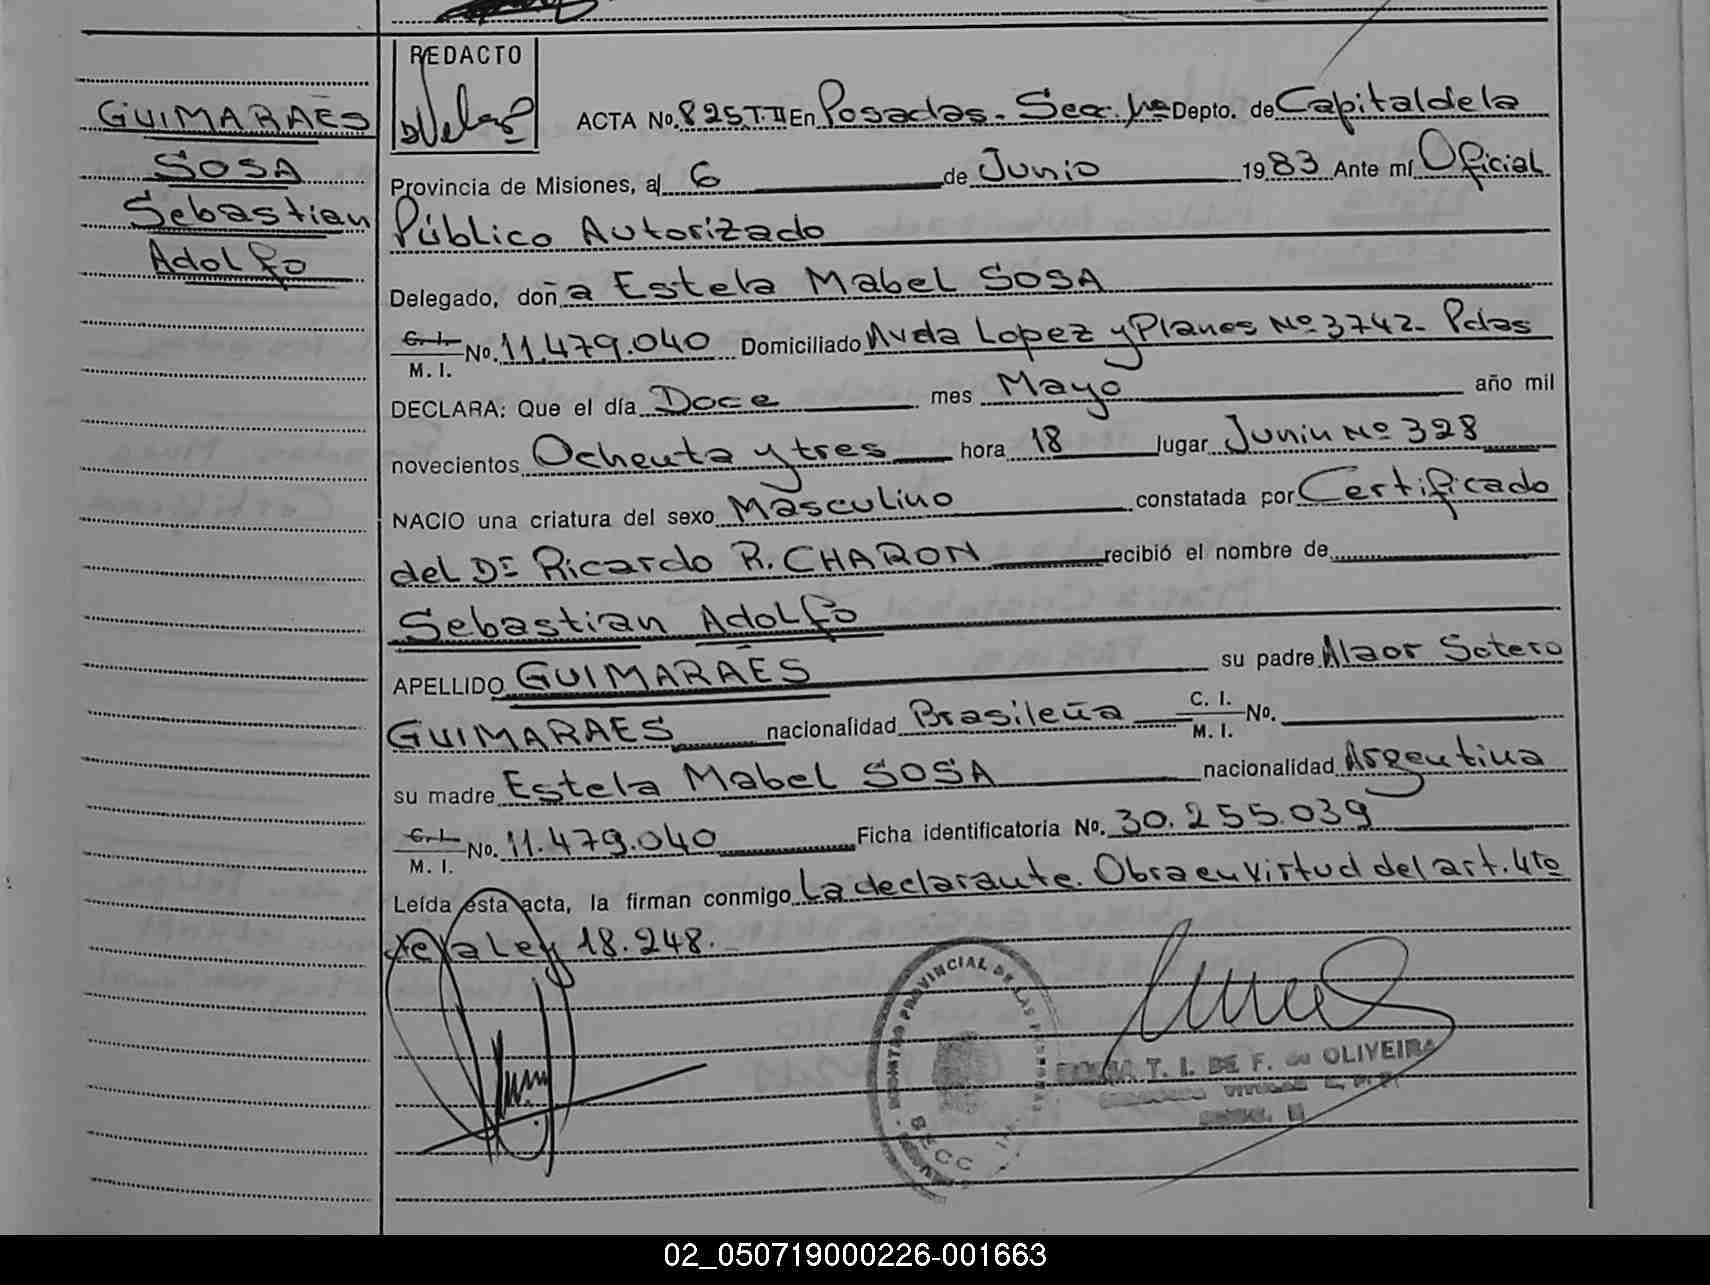 GUIMARAẼS
SOSA
Sebastian
Adolfo
REDACTO
ACTA No. 825 T. II En Posadas - Secc. 1ra Depto. de Capital de la
Provincia de Misiones, al 6 de Junio 1983 Ante mí Oficial
Público Autorizado
Delegado, doña Estela Mabel SOSA
C. I.
M. I. No. 11.479.040 Domiciliado Avda Lopez y Planes Nº 3742 - Pdas
DECLARA: Que el día Doce mes Mayo año mil
novecientos Ochenta y tres hora 18 lugar Junin Nº 328
NACIO una criatura del sexo Masculino constatada por Certificado
del Dr Ricardo R. CHARON recibió el nombre de
Sebastian Adolfo
APELLIDO GUIMARAẼS su padre Alaor Sotero
GUIMARAES nacionalidad Brasileña C. I.
M. I. No.
su madre Estela Mabel SOSA nacionalidad Argentina
C. I.
M. I. No. 11.479.040 Ficha identificatoria No. 30.255.039
Leída ésta acta, la firman conmigo La declarante. Obra en virtud del art. 4to
de la Ley 18.248.-
REGISTRO PROVINCIAL DE LAS PERSONAS
SECC
T. I. DE F. de OLIVEIRA
02_050719000226-001663